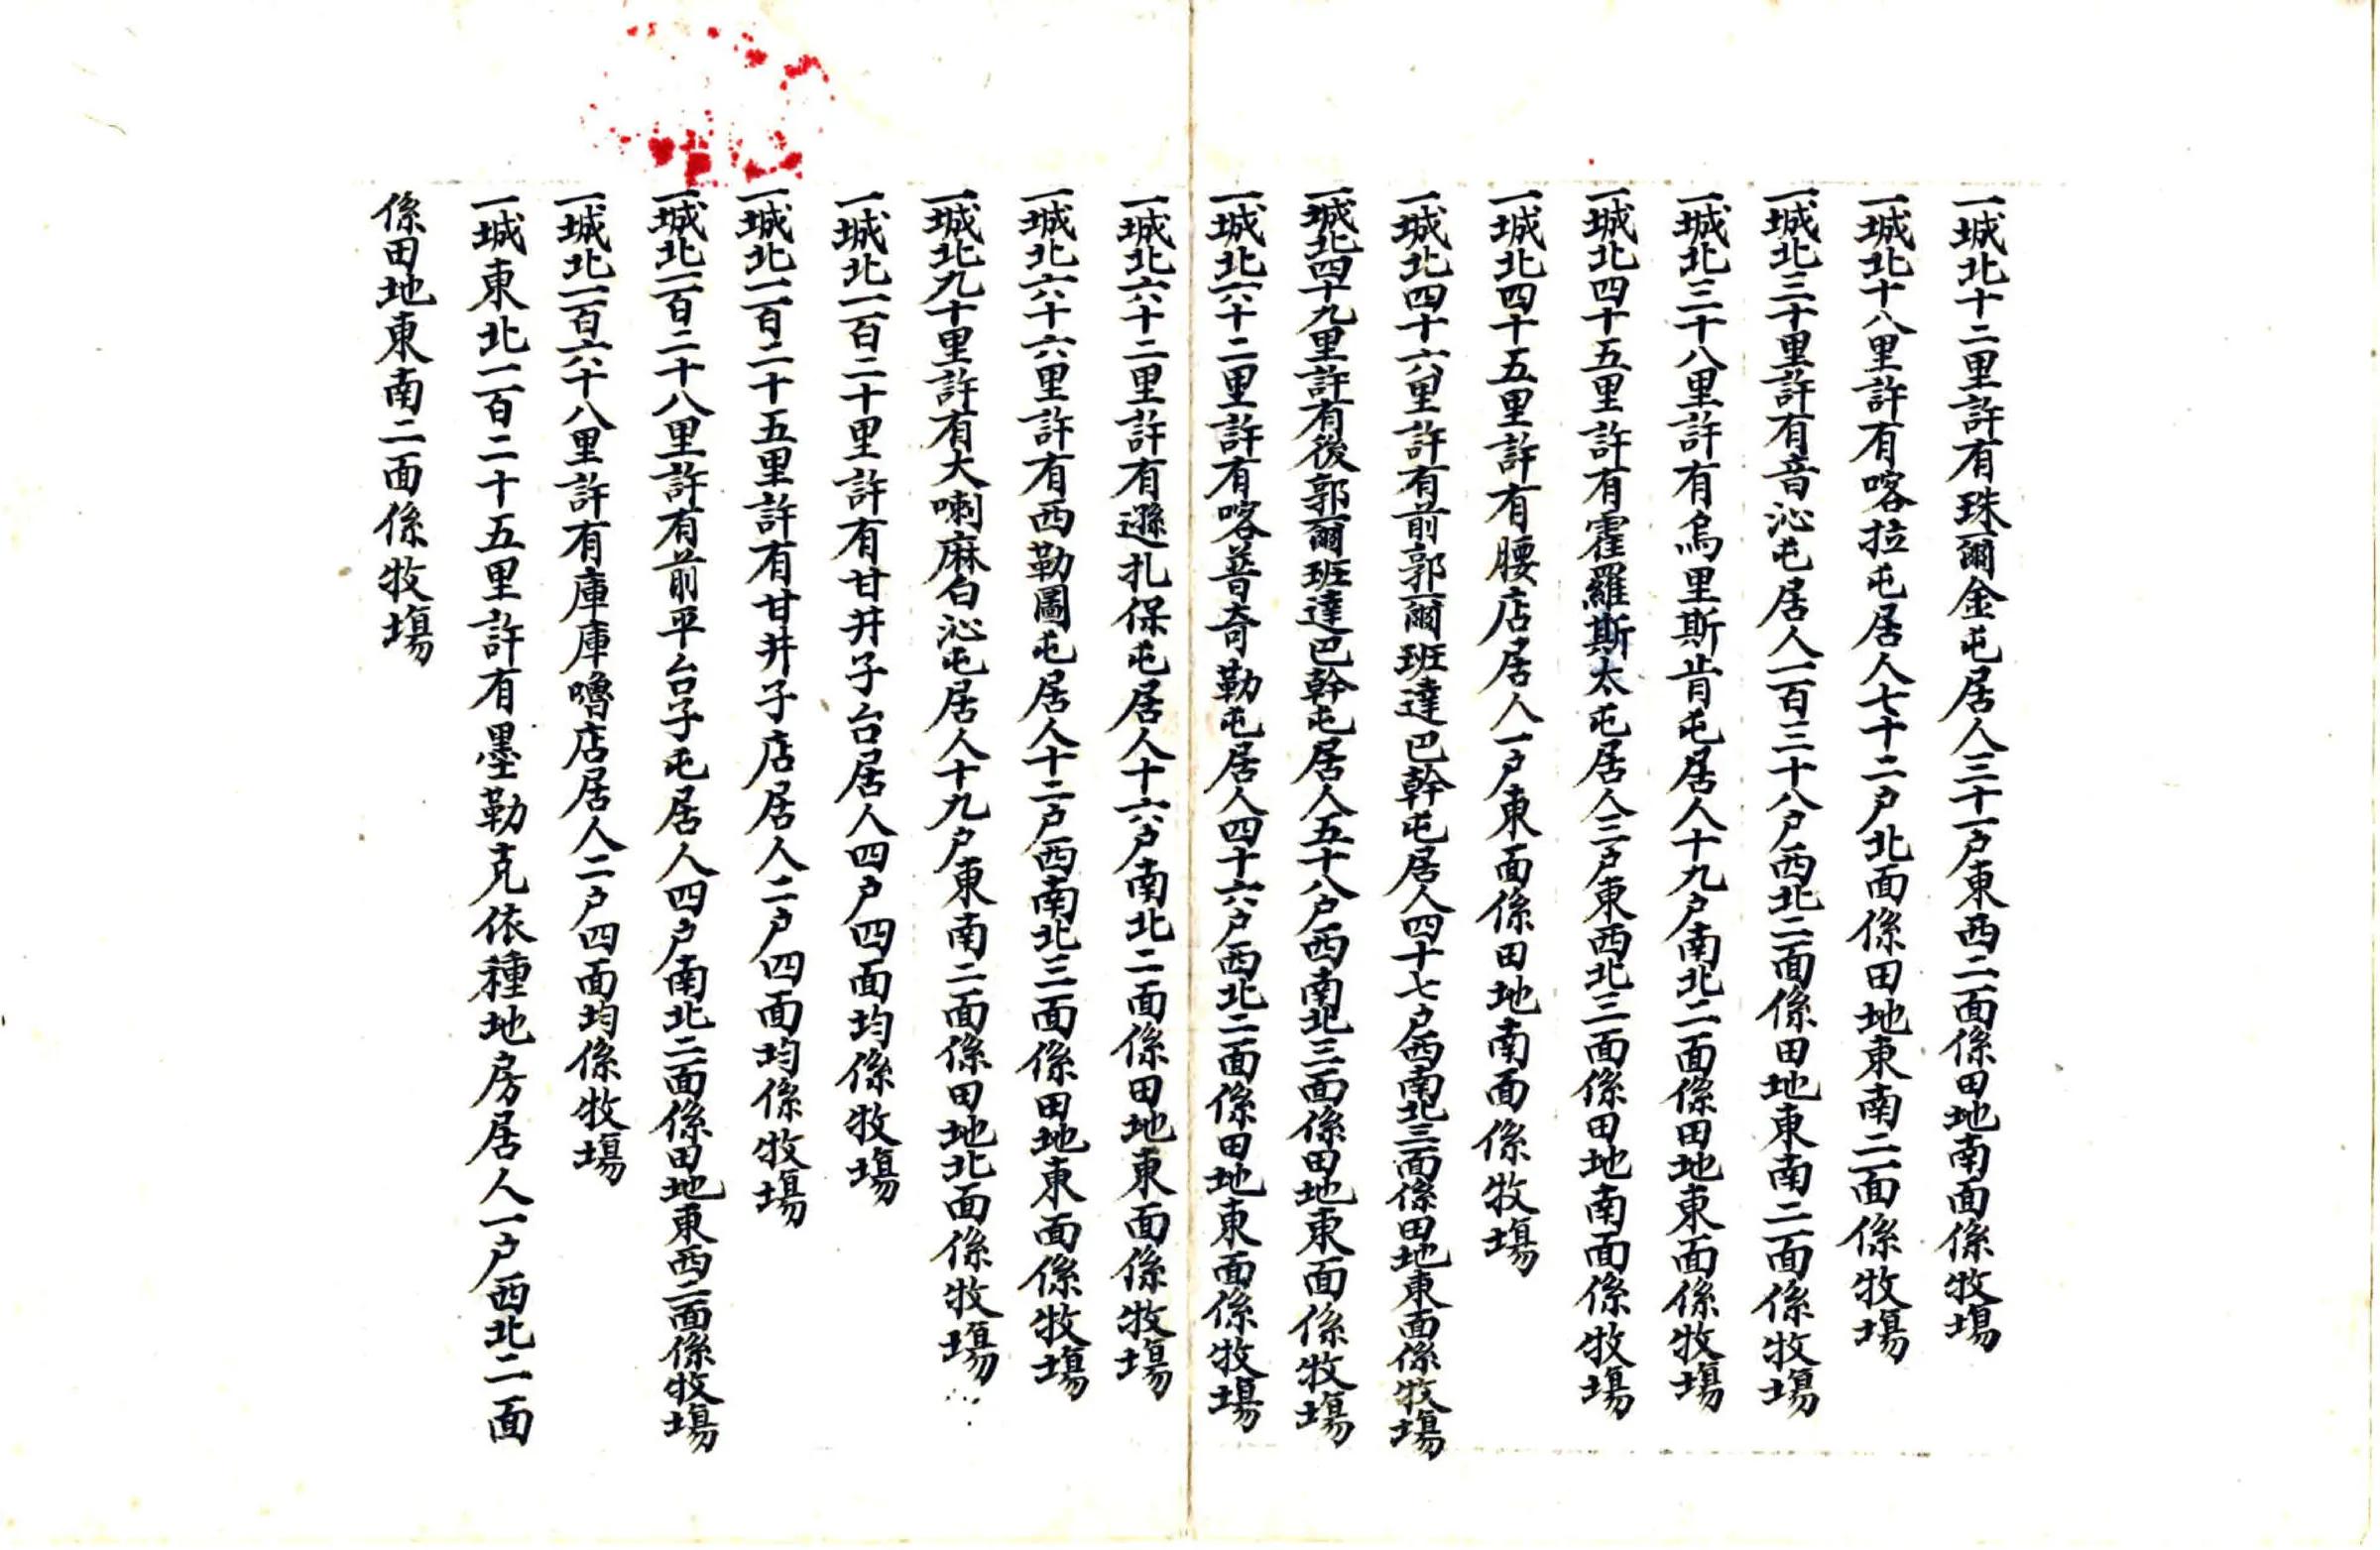 一城北十二里許有珠爾金屯居人三十一户東西二面係田地南面係牧場
一城北十八里許有喀拉屯居人七十二户北面係田地東南二面係牧場
一城北三十里許有音沁屯居人一百三十八户西北二面係田地東南二面係牧場
一城北三十八里許有烏里斯肯屯居人十九户南北二面係田地東面係牧場
一城北四十五里許有霍羅斯太屯居人三户東西北三面係田地南面係牧場
一城北四十五里許有腰店居人一户東面係田地南面係牧場
一城北四十六里許有前郭爾班達巴幹屯居人四十七户西南北三面係田地東面係牧場
一城北四十九里許有後郭爾班達巴幹屯居人五十八户西南北三面係田地東面係牧場
一城北六十二里許有喀普奇勒屯居人四十六户西北二面係田地東面係牧場
一城北六十二里許有遜扎保屯居人十六户南北二面係田地東面係牧場
一城北六十六里許有西勒圖屯居人十二户西南北三面係田地東面係牧場
一城北九十里許有大喇麻白沁屯居人十九户東南二面係田地北面係牧場
一城北一百二十里許有甘井子台居人四户四面均係牧場
一城北一百二十五里許有甘井子店居人二户四面均係牧場
一城北一百二十八里許有前平台子屯居人四户南北二面係田地東西二面係牧場
一城北一百六十八里許有庫庫嚕店居人二户四面均係牧場
一城東北一百二十五里許有墨勒克依種地房居人一户西北二面
係田地東南二面係牧場